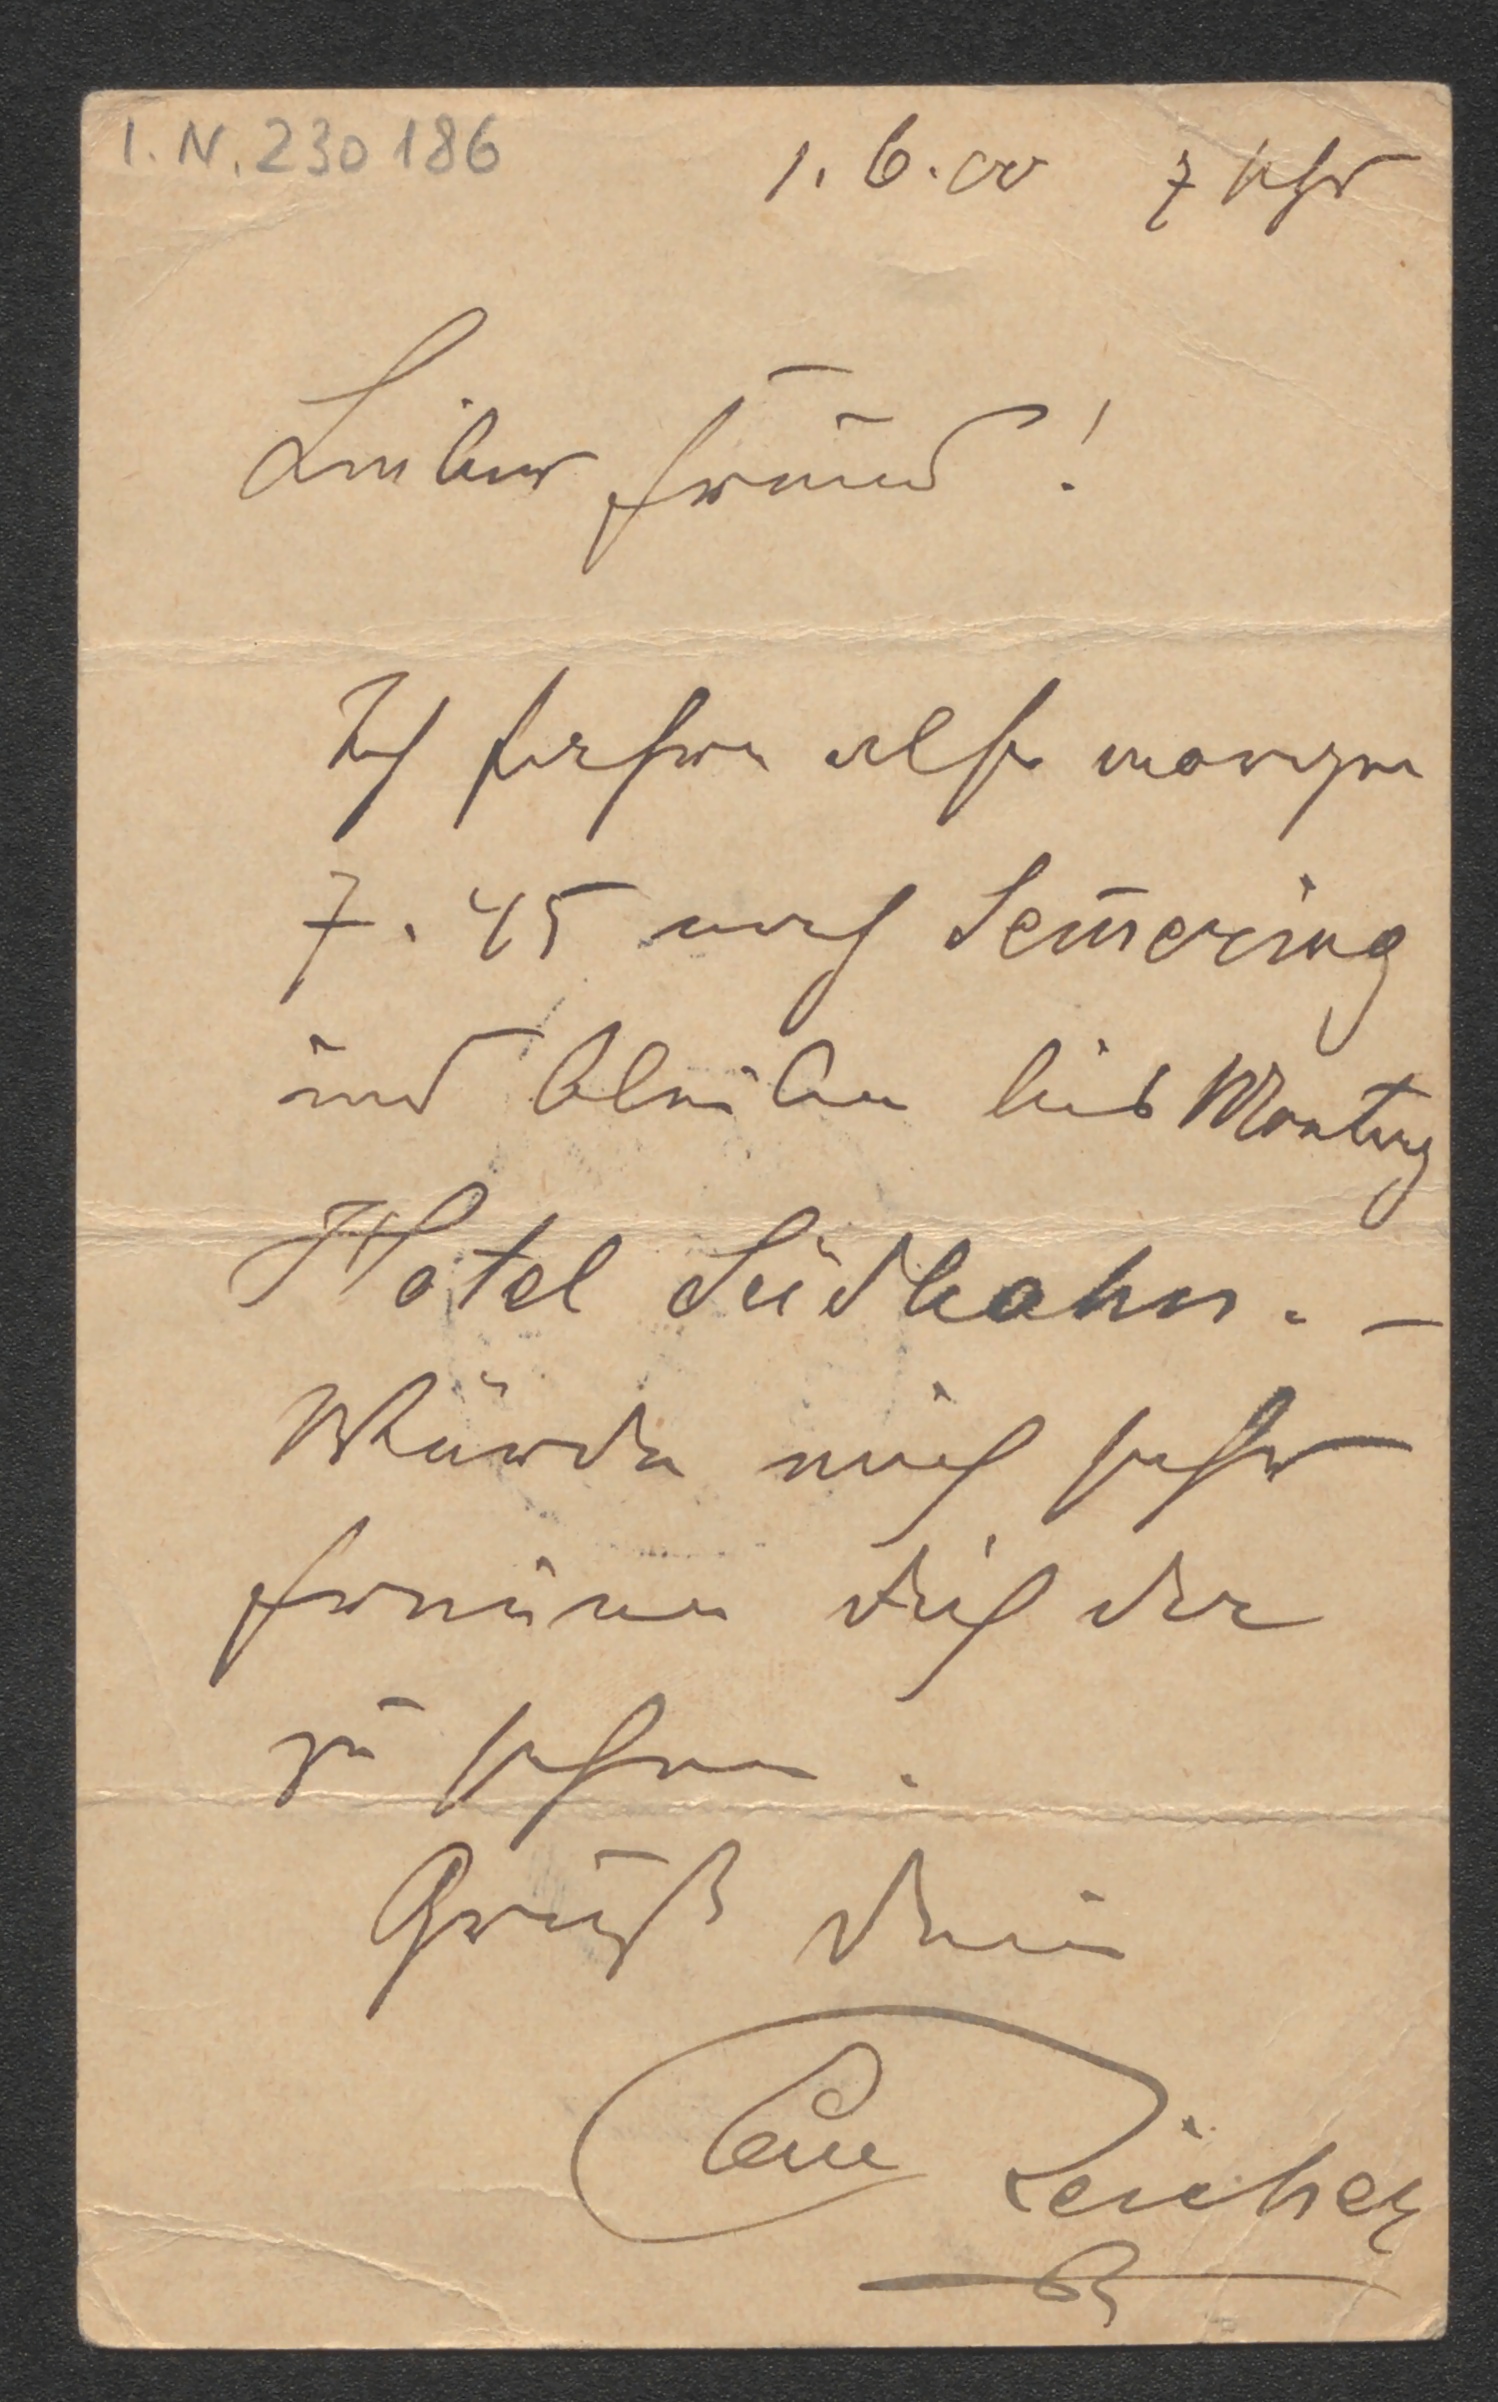 I.N. 230186
1. 6. 00 7 Uhr
Lieber Freund!
Ich fahre also morgen
7.45 nach Sem̅ering
und bleibe bis Montag
Hotel Südbahn. –
Würde mich sehr
freuen Dich da
zu sehen.
Gruß Dein
Em Reicher